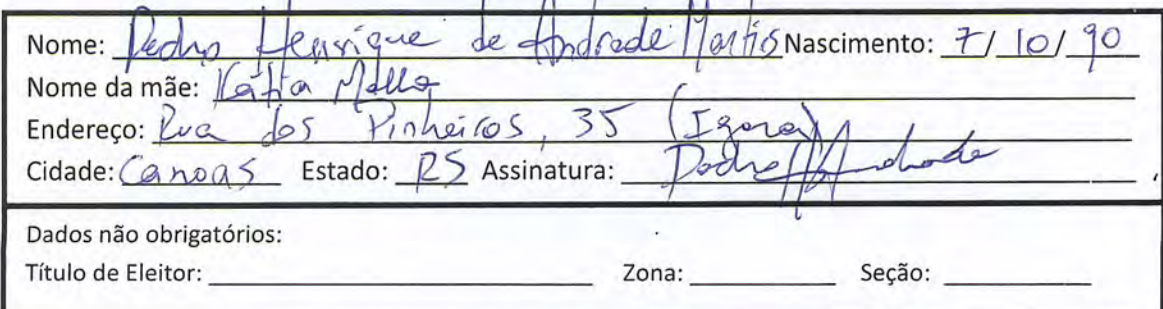 Nome: Pedro Henrique de Andrade Martins Nascimento: 7/10/90
Nome da mãe: Kátia Mello
Endereço: Rua dos Pinheiros, 35 (Igara)
Cidade: Canoas Estado: RS Assinatura: Pedro H Andrade
Dados não obrigatórios:
Título de Eleitor: Zona: Seção: